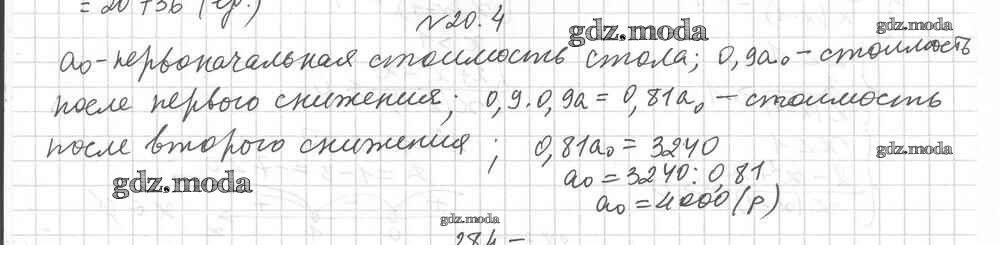 = 20 + 36 (гр.)
№20.4
gdz.moda
gdz.moda
a₀ - первоначальная стоимость стола; 0,9a₀ - стоимость
после первого снижения; 0,9·0,9a = 0,81a₀ - стоимость
после второго снижения ; 0,81a₀ = 3240
gdz.moda
a₀ = 3240 : 0,81
gdz.moda
a₀ = 4000 (р)
gdz.moda